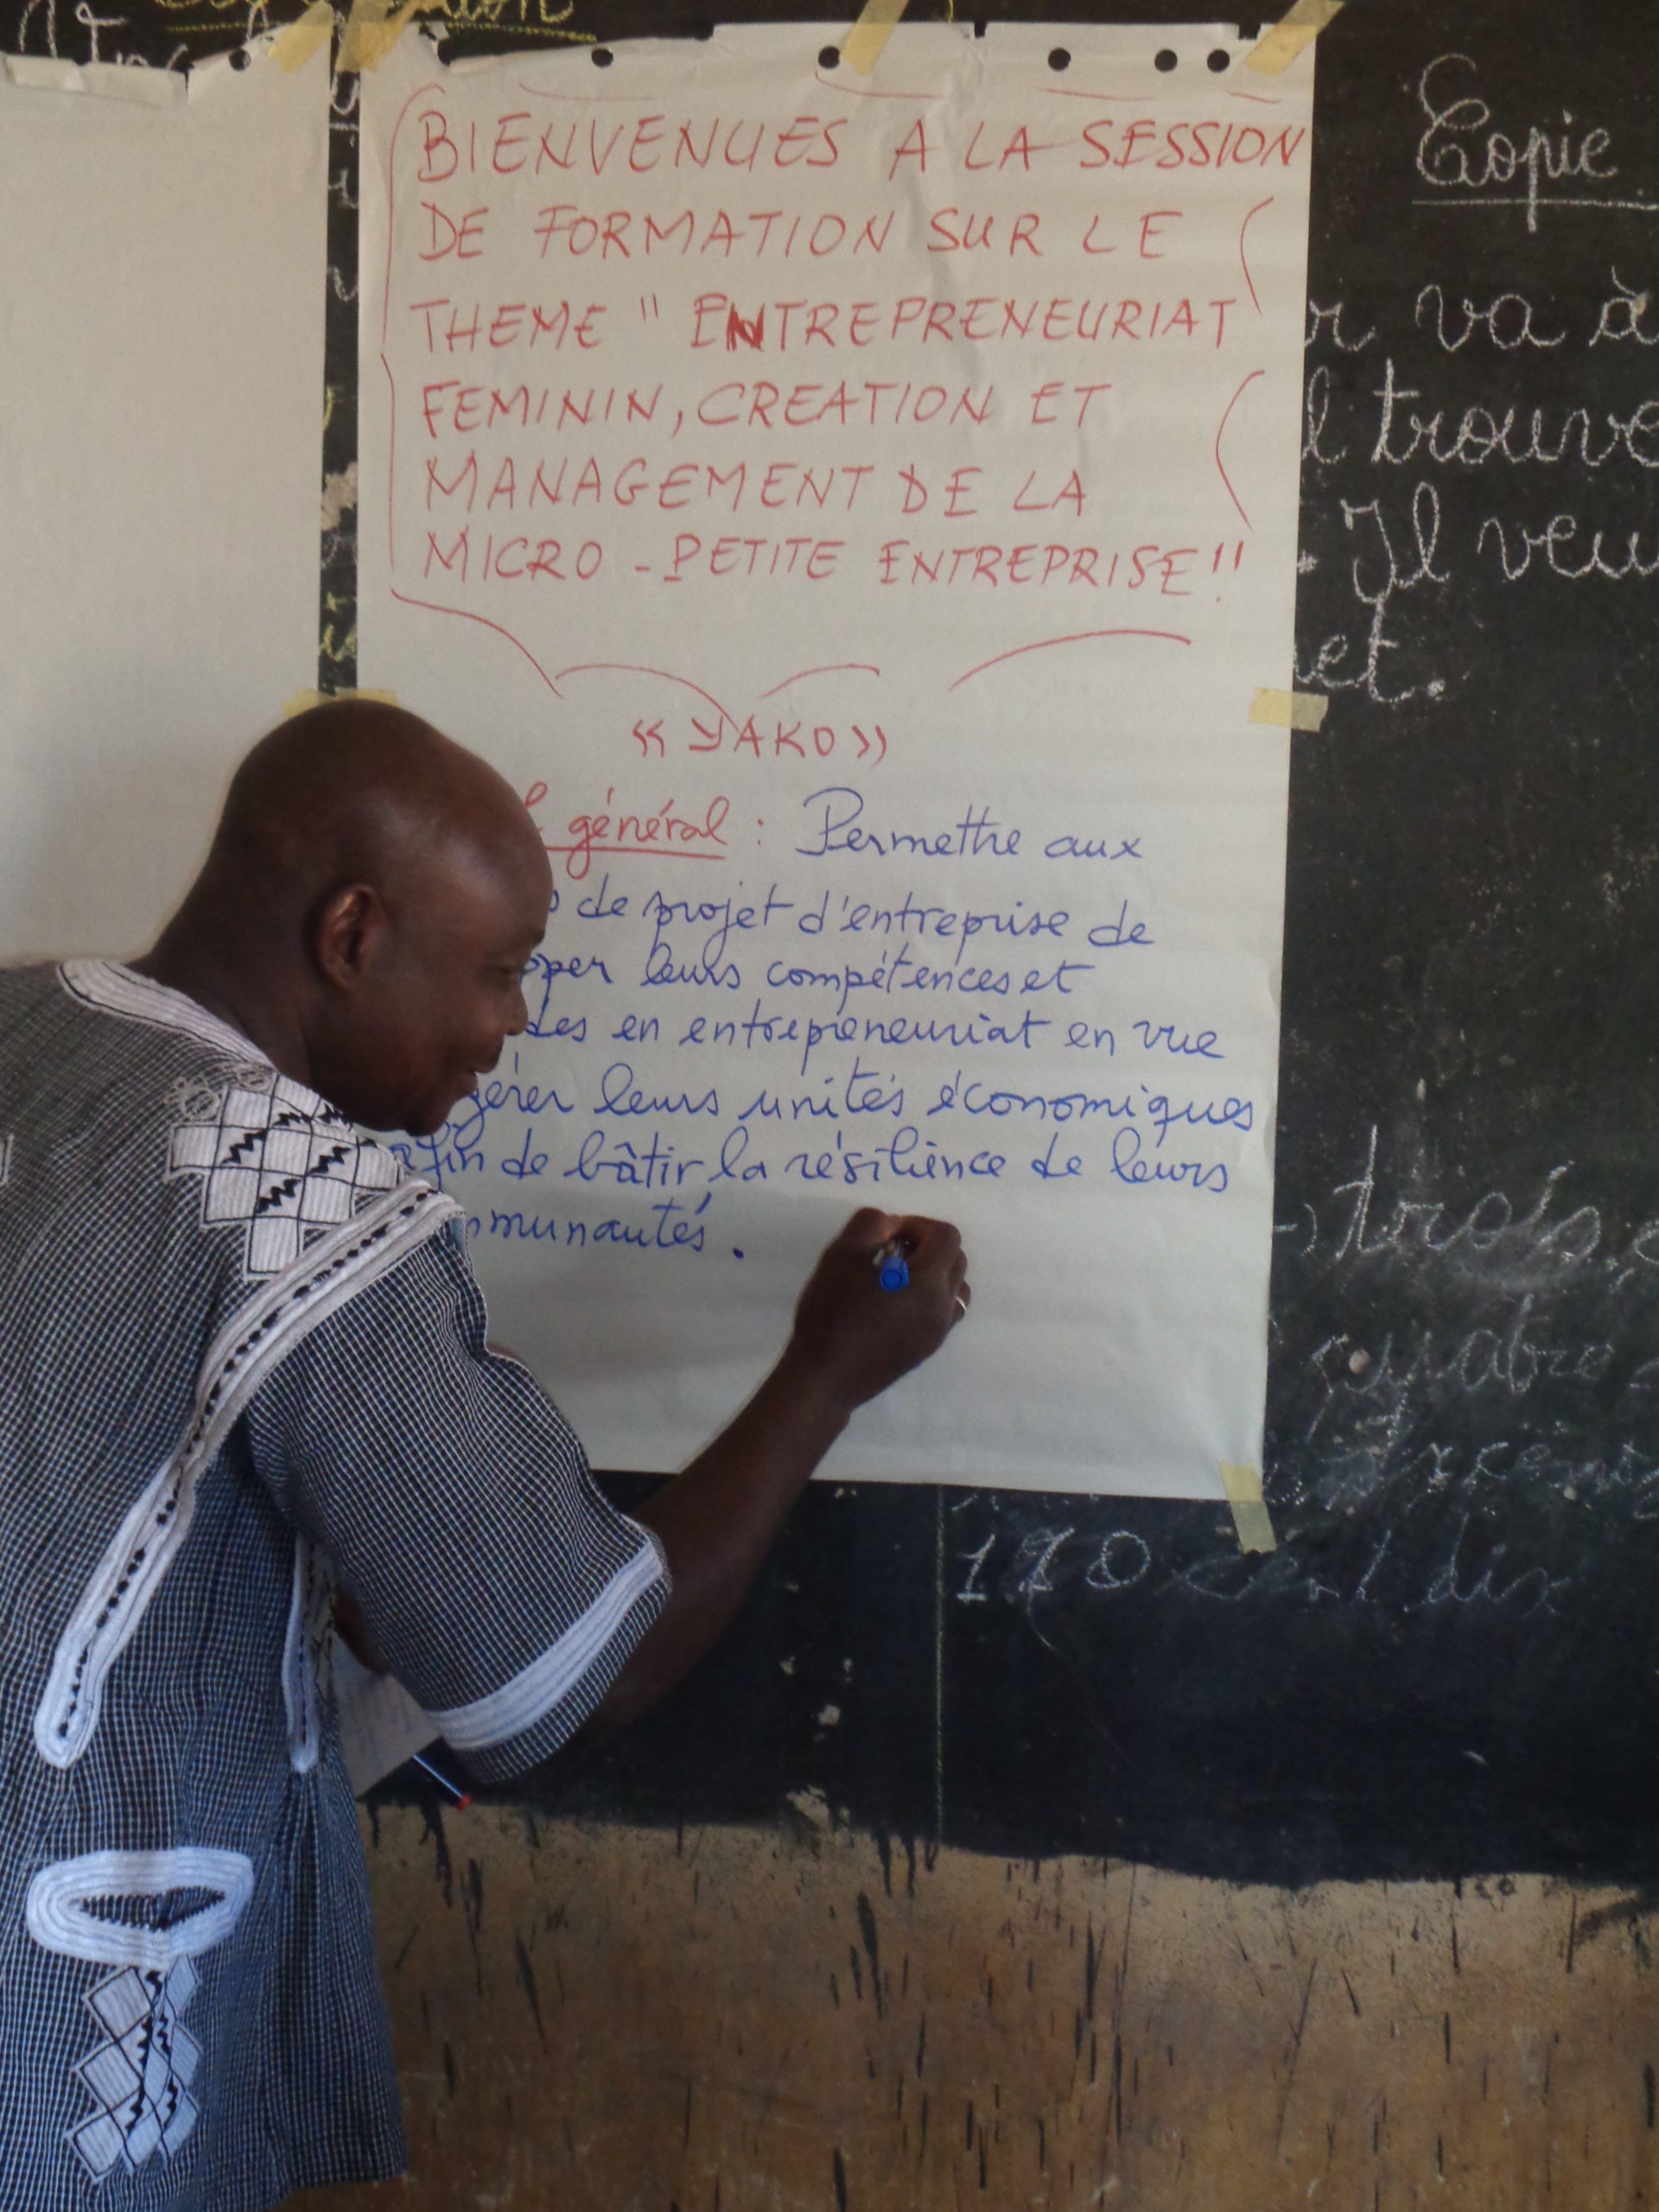 BIENVENUES A LA SESSION
DE FORMATION SUR LE
THEME " ENTREPRENEURIAT
FEMININ, CREATION ET
MANAGEMENT DE LA
MICRO-PETITE ENTREPRISE!!
« YAKO »
général : Permettre aux
de projet d'entreprise de
leurs compétences et
en entrepreneuriat en vue
gérer leurs unités économiques
afin de bâtir la résilience de leurs
munautés.
Copie
va à
trouve
. Il veu
et.
trois
110 cent dix